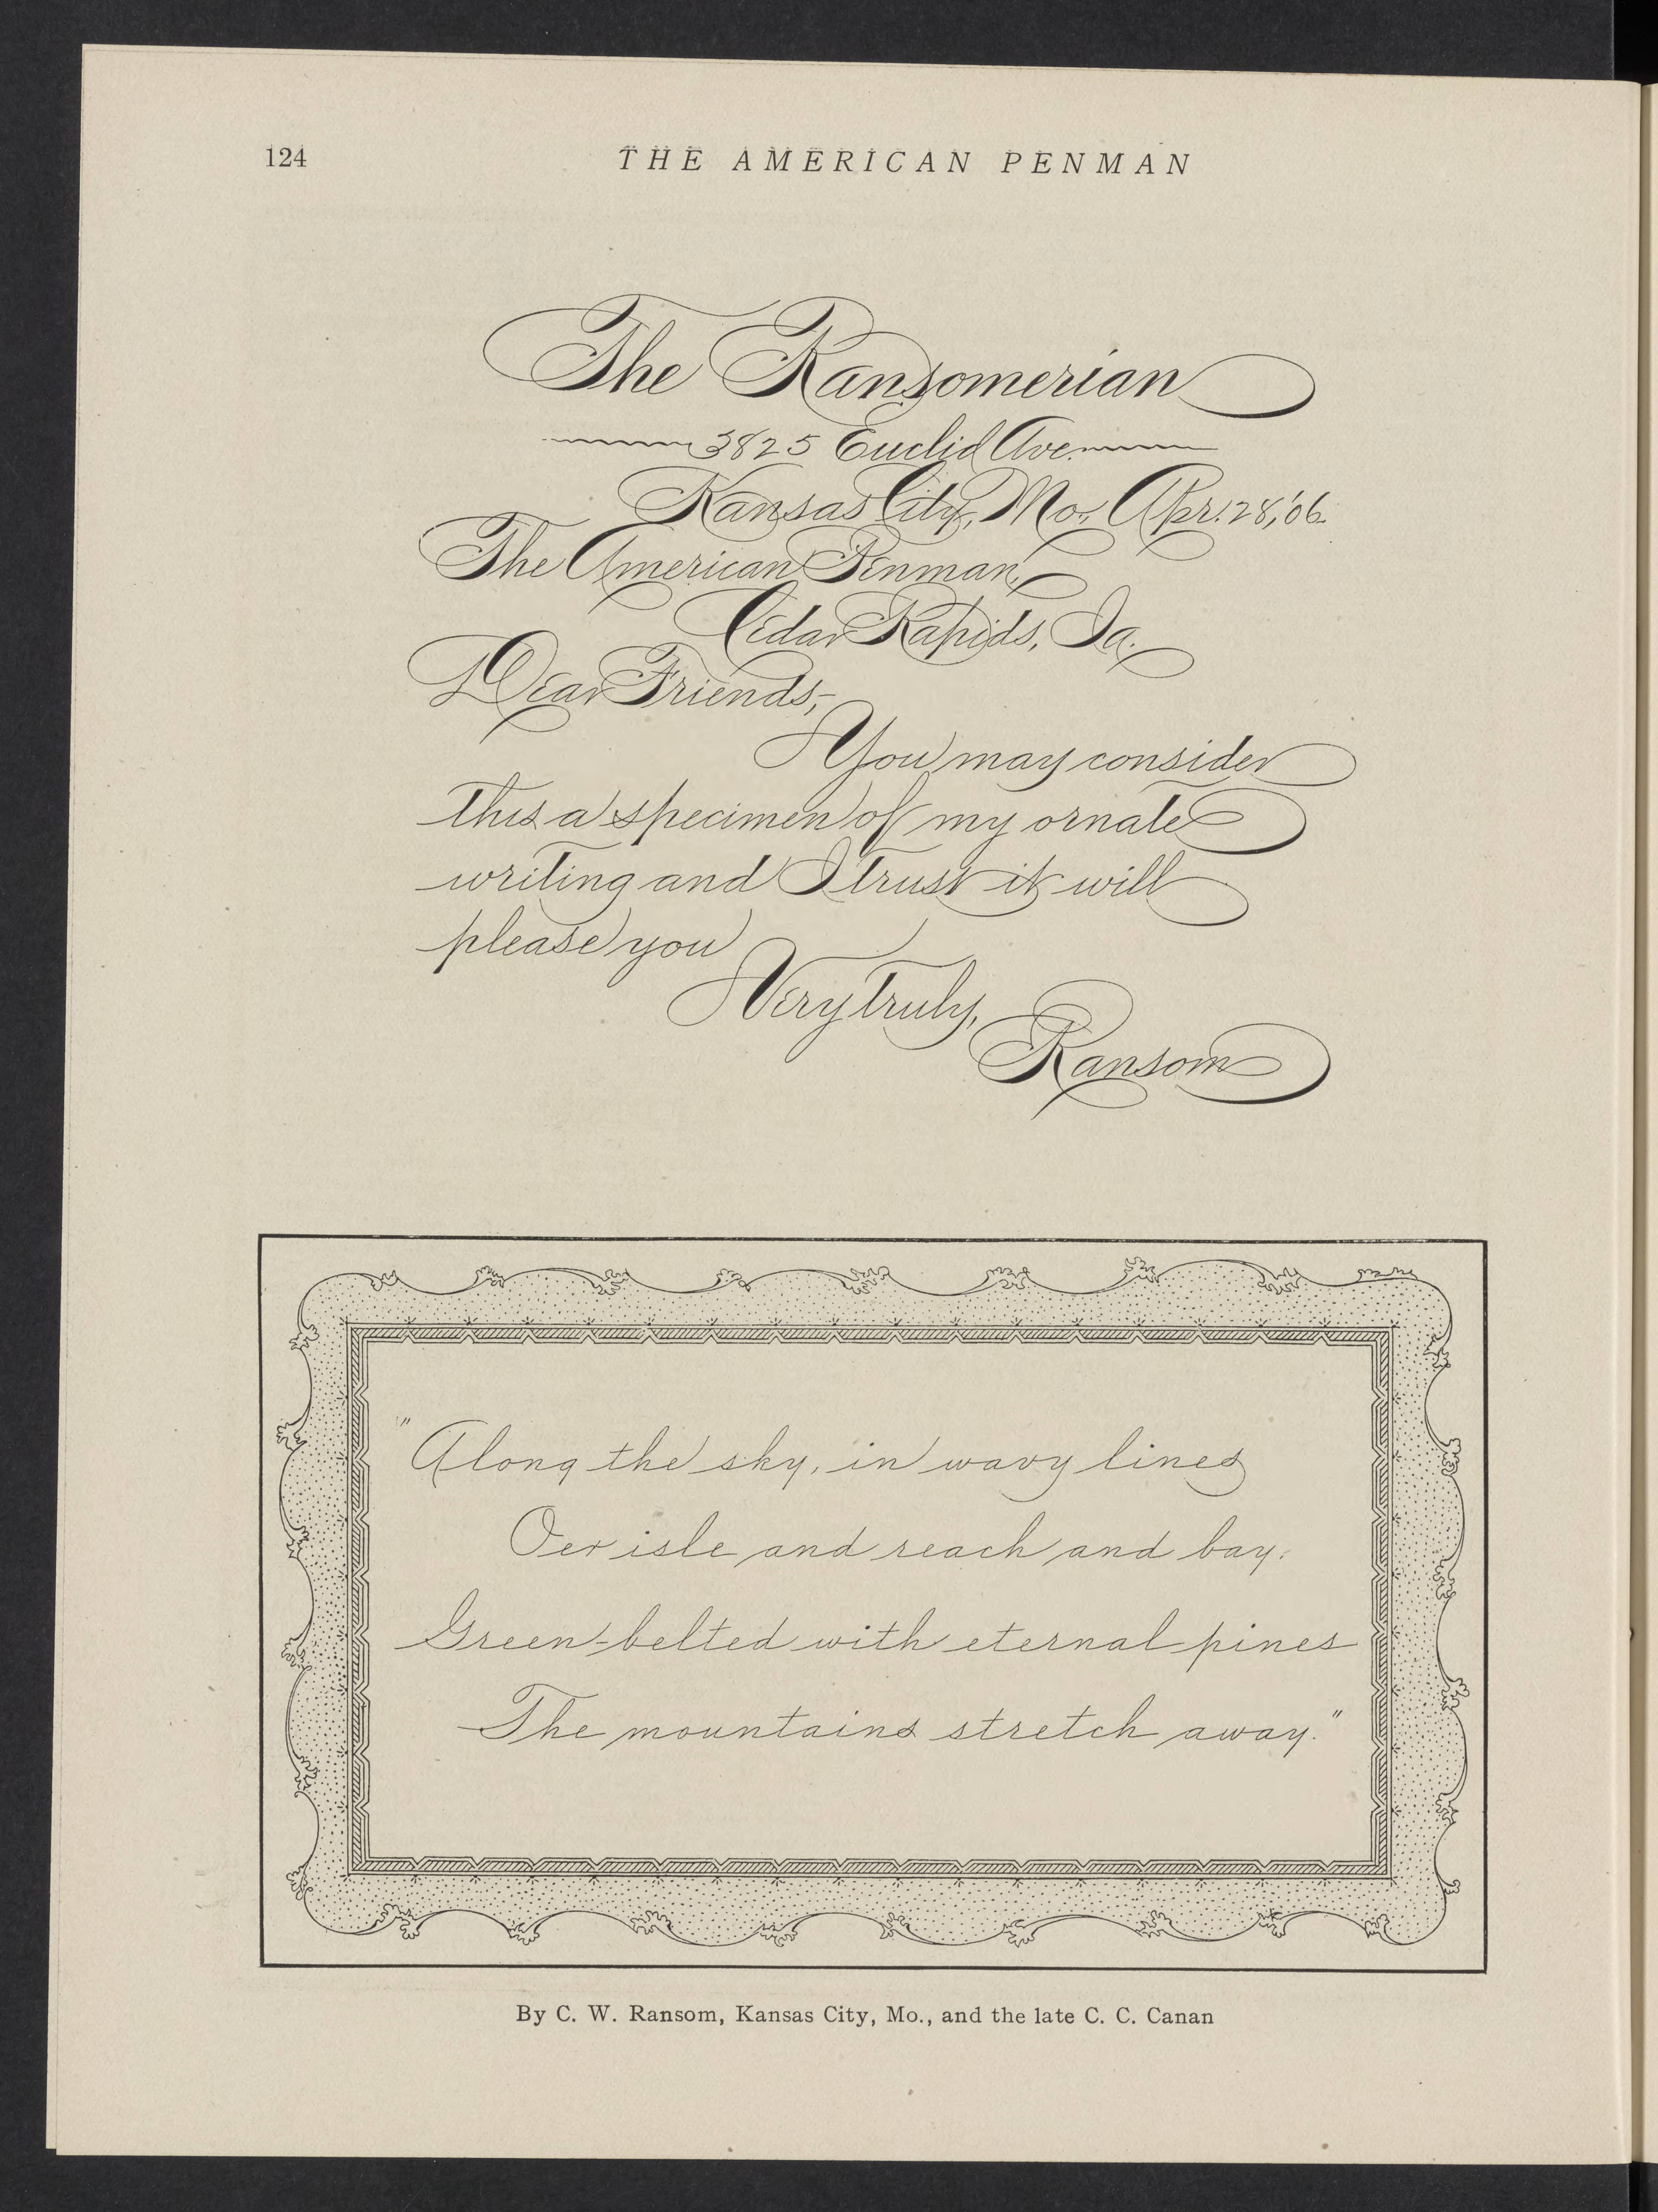 124
THE AMERICAN PENMAN
The Ransomerian
3825 Euclid Ave.
Kansas City, Mo., Apr. 28, '06.
The American Penman,
Cedar Rapids, Ia.
Dear Friends;-
You may consider
this a specimen of my ornate
writing and I trust it will
please you
Very truly,
Ransom
"Along the sky, in wavy lines
Oer isle and reach and bay,
Green-belted with eternal pines
The mountains stretch away."
By C. W. Ransom, Kansas City, Mo., and the late C. C. Canan